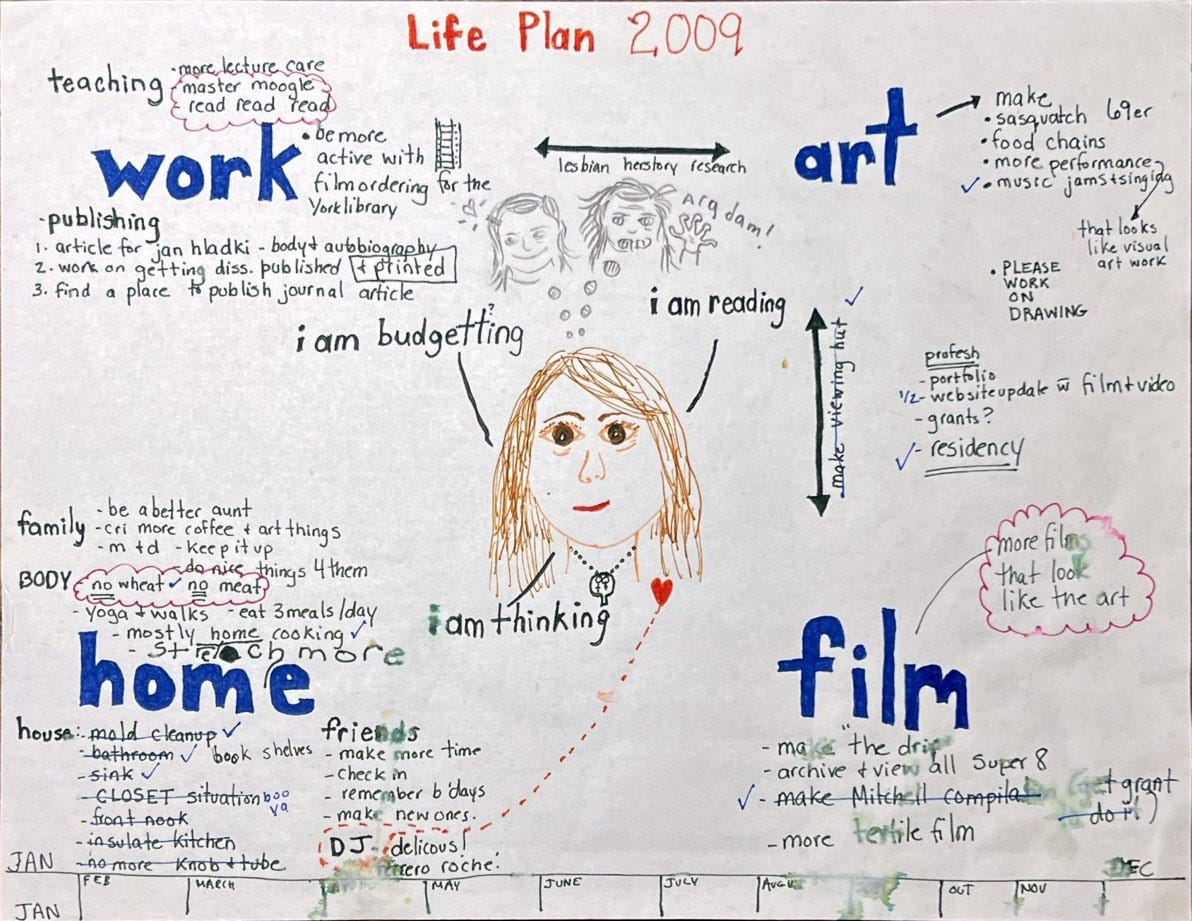 Life Plan 2009
teaching
- more lecture care
master moogle
read read read
work
• be more
active with
film ordering for the
York library
- publishing
1. article for jan hladki - body + autobiography
2. work on getting diss. published + printed
3. find a place to publish journal article
lesbian herstory research
Arg dam!
art
make
• sasquatch 69er
• food chains
• more performance
✓ • music jams + singing
that looks
like visual
art work
• PLEASE
WORK
ON
DRAWING
i am budgetting
?
i am reading
make viewing hut ✓
profesh
- portfolio
1/2 - website update w film + video
- grants?
✓ - residency
family
- be a better aunt
- cri more coffee + art things
- m + d - keep it up
- do nice things 4 them
BODY
no wheat ✓ no meat
- yoga + walks - eat 3 meals / day
- mostly home cooking ✓
- stretch more
i am thinking
home
house:
- mold cleanup ✓
- bathroom ✓ book shelves
- sink ✓
- CLOSET situation boo ya
- front nook
- insulate kitchen
- no more knob + tube
friends
- make more time
- check in
- remember b'days
- make new ones.
DJ - delicous!
roche!
more films
that look
like the art
film
- make "the drip"
- archive + view all Super 8
✓ - make Mitchell (get grant
do it)
- more film
JAN
FEB
MARCH
MAY
JUNE
JULY
AUGUST
OCT
NOV
DEC
JAN